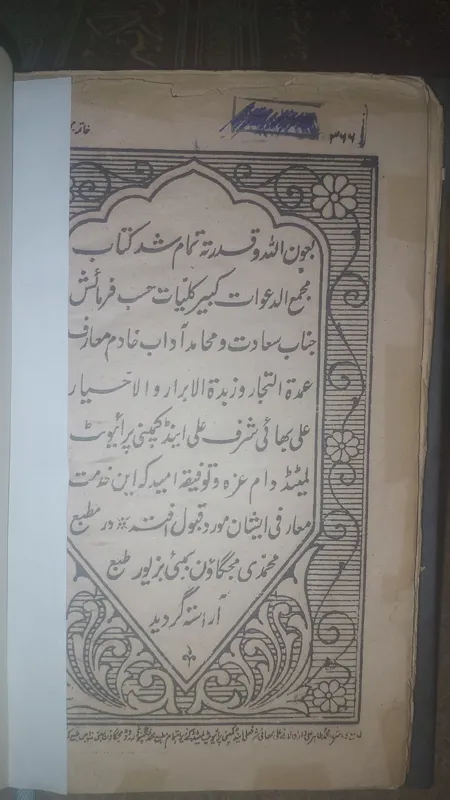 ۳۶۶
بعون اللہ و قدرتہ تمام شد کتاب
مجمع الدعوات کبیر کلیّات حسب فرمائش
جناب سعادت و محامد آداب خادم معارف
عمدة التجار و زبدة الابرار و الاخیار
علی بھائی شرف علی اینڈ کمپنی پرائیوٹ
لمیٹڈ دام عزہ و توفیقہ امید کہ این خدمت
معارفی ایشان مورد قبول افتد در مطبع
محمدی مجگاؤن بمبئی بزیور طبع
آراستہ گردید